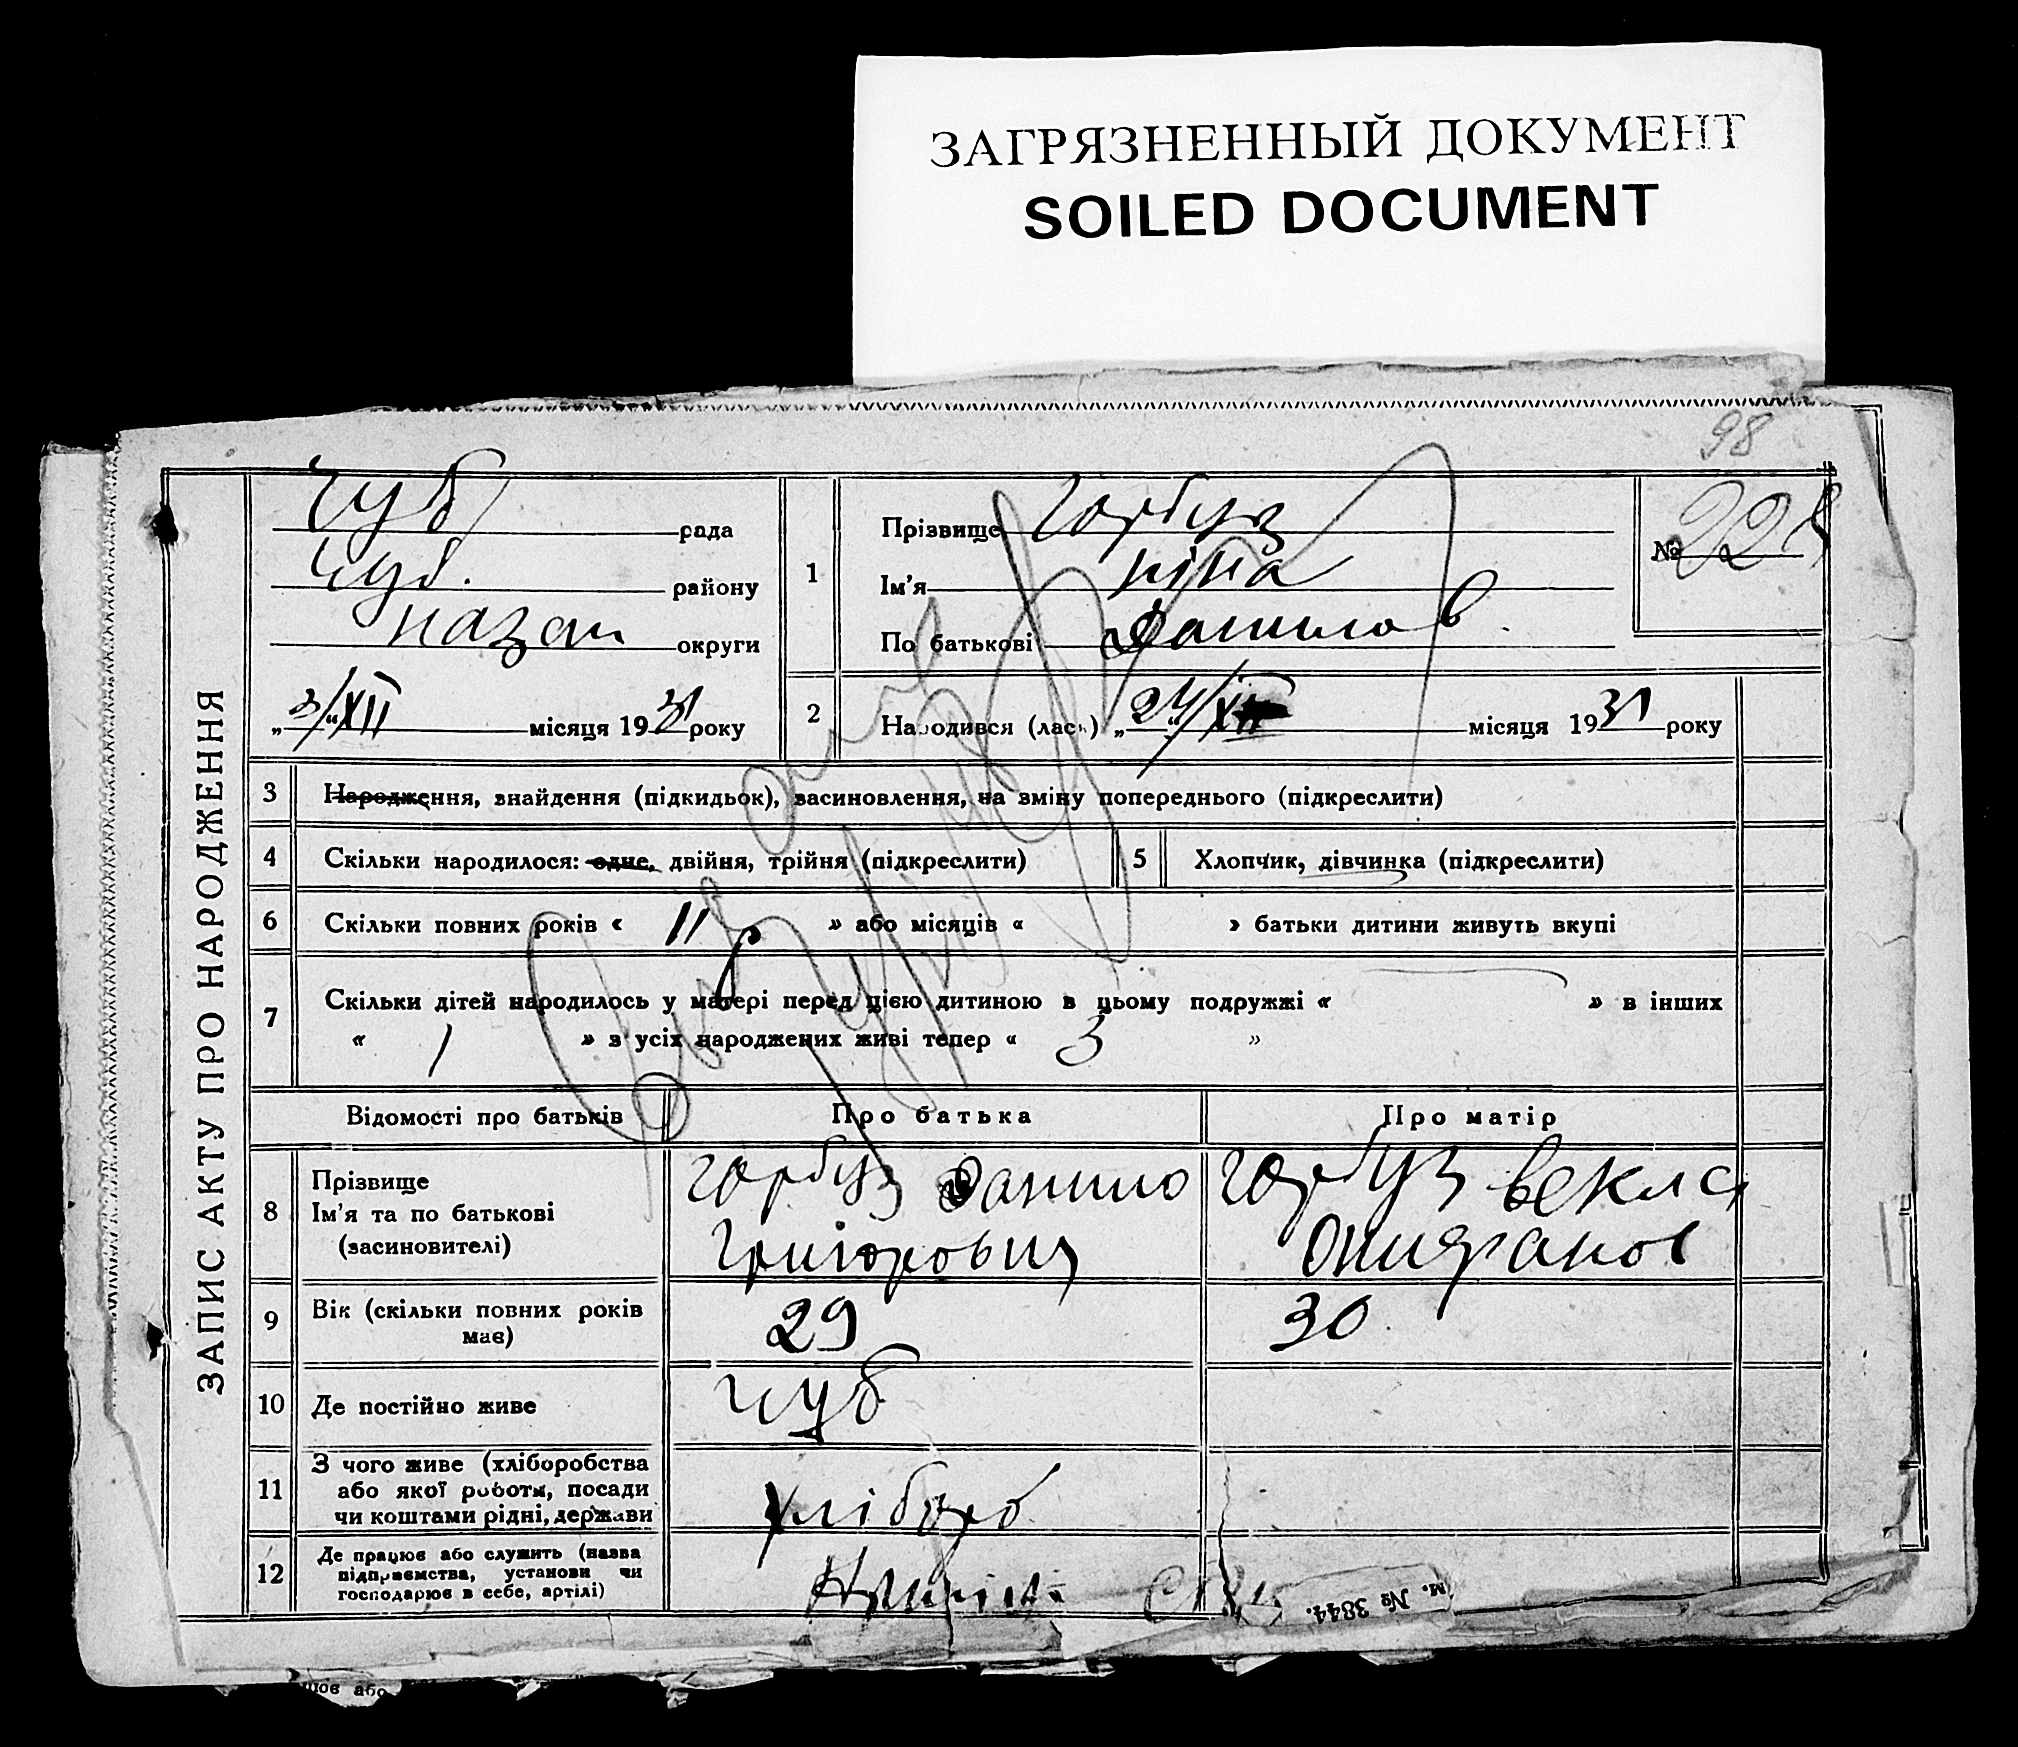 ЗАГРЯЗНЕННЫЙ ДОКУМЕНТ
SOILED DOCUMENT
98
ЗАПИС АКТУ ПРО НАРОДЖЕННЯ
Чуб рада
Чуб. району
округи
„3/“XII місяця 1931 року
1
Прізвище Гарбуз
Ім'я Ніна
По батькові Данилов.
№ 228
2
Народився (лась) „24/“ XII місяця 1931 року
3 Народження, знайдення (підкидьок), засиновлення, на зміну попереднього (підкреслити)
4 Скільки народилося: одне, двійня, трійня (підкреслити)
5 Хлопчик, дівчинка (підкреслити)
6 Скільки повних років « 11 » або місяців « » батьки дитини живуть вкупі
7 Скільки дітей народилось у матері перед цією дитиною в цьому подружжі « » в інших
« 1 » з усіх народжених живі тепер « 3 »
Відомості про батьків Про батька Про матір
8 Прізвище
Ім'я та по батькові
(засиновителі)
Гарбуз Данило
Григорович
Гарбуз Векла
9 Вік (скільки повних років
має)
29
30
10 Де постійно живе
Чуб
11 З чого живе (хліборобства
або якої роботи, посади
чи коштами рідні, держави
хлібороб
12 Де працює або служить (назва
підприємства, установи чи
господарює в себе, артілі)
м. № 3844.
або